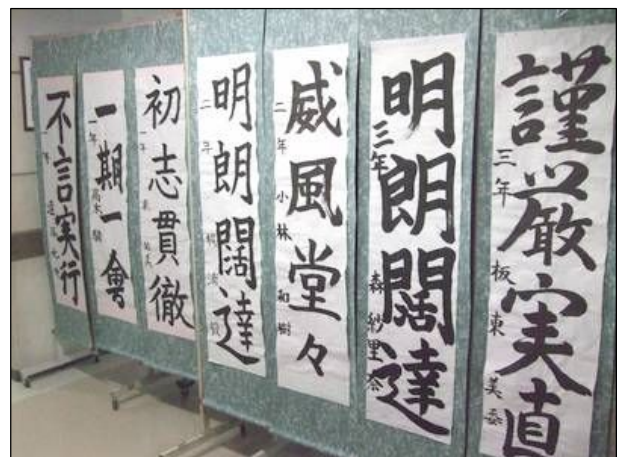 謹厳実直
三年 板東 美
明朗闊達
三年 森 紗里奈
威風堂々
二年 小林 和樹
明朗闊達
二年
初志貫徹
一年
一期一會
一年 高木
不言実行
一年